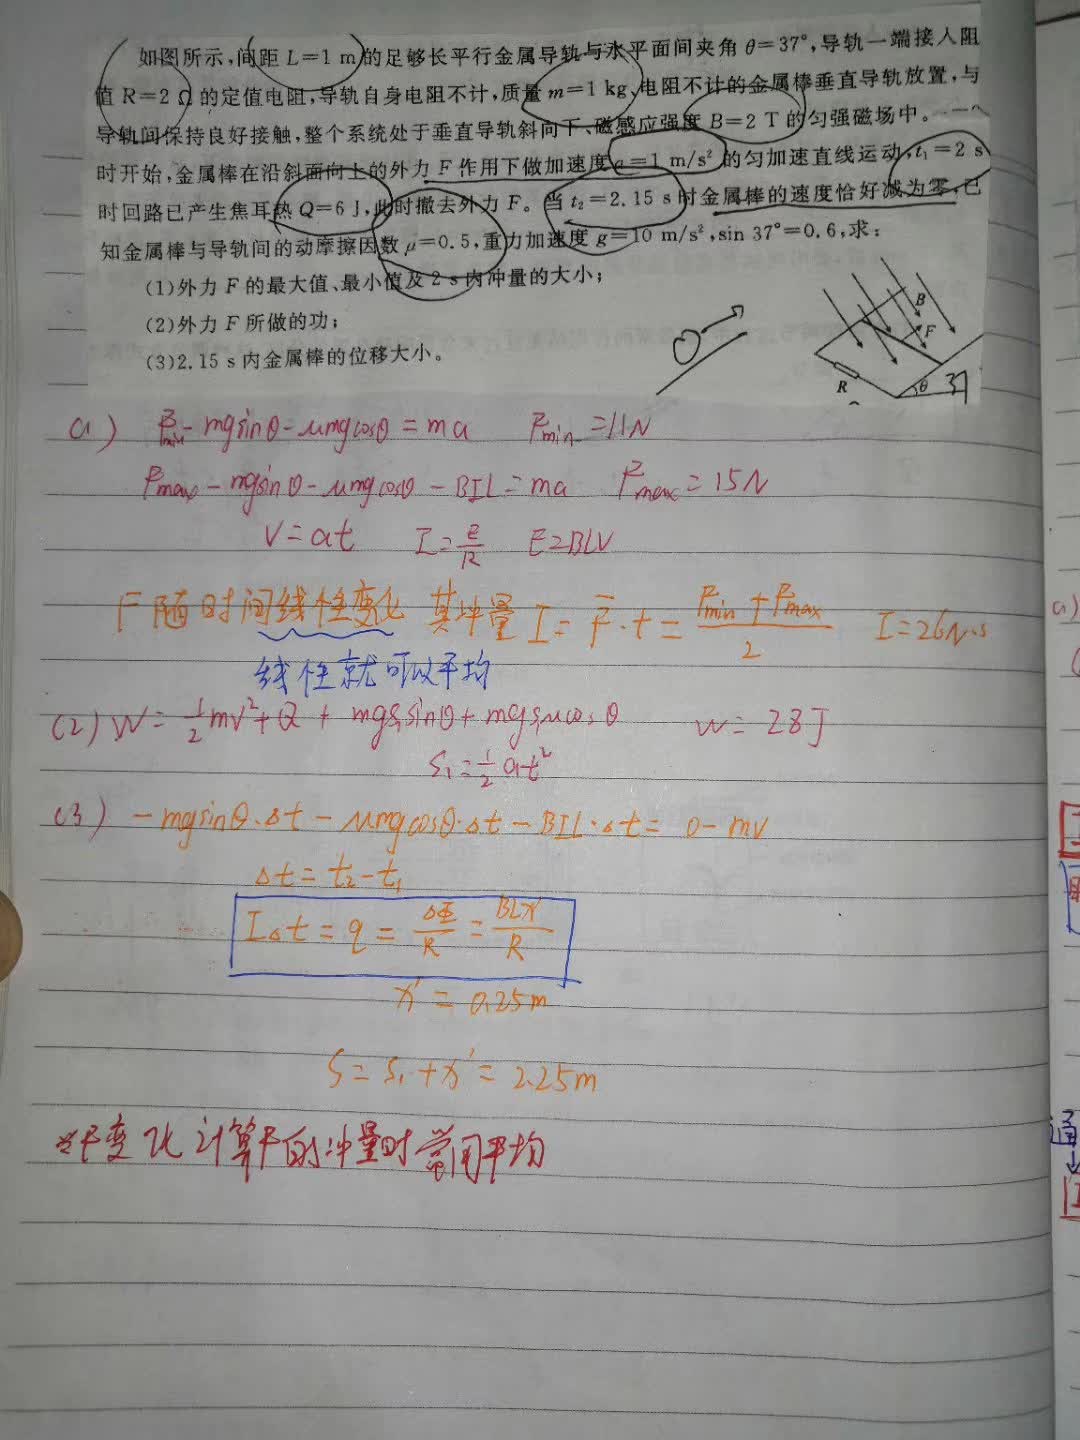 如图所示,间距 L=1 m 的足够长平行金属导轨与水平面间夹角 θ=37°,导轨一端接入阻
值 R=2 Ω 的定值电阻,导轨自身电阻不计,质量 m=1 kg、电阻不计的金属棒垂直导轨放置,与
导轨间保持良好接触,整个系统处于垂直导轨斜向下、磁感应强度 B=2 T 的匀强磁场中。
时开始,金属棒在沿斜面向上的外力 F 作用下做加速度 a=1 m/s² 的匀加速直线运动,t₁=2 s
时回路已产生焦耳热 Q=6 J,此时撤去外力 F。当 t₂=2.15 s 时金属棒的速度恰好减为零,已
知金属棒与导轨间的动摩擦因数 μ=0.5,重力加速度 g=10 m/s²,sin 37°=0.6,求:
(1)外力 F 的最大值、最小值及 2 s 内冲量的大小;
(2)外力 F 所做的功;
(3)2.15 s 内金属棒的位移大小。
B
F
R
θ
37
(1) Fmin - mgsinθ - μmgcosθ = ma Fmin = 11N
Fmax - mgsinθ - μmgcosθ - BIL = ma Fmax = 15N
V = at I = E/R E = BLV
F随时间线性变化 其冲量 I = F̄·t = (Fmin + Fmax)/2 I = 26N·s
线性就可以平均
(2) W = ½mv² + Q + mgs₁sinθ + mgs₁μcosθ W = 28J
S₁ = ½at²
(3) - mgsinθ·Δt - μmgcosθ·Δt - BIL·Δt = 0 - mv
Δt = t₂ - t₁
IΔt = q = ΔΦ/R = BLx'/R
x' = 0.25m
S = S₁ + x' = 2.25m
*F变化 计算F的冲量时常用平均